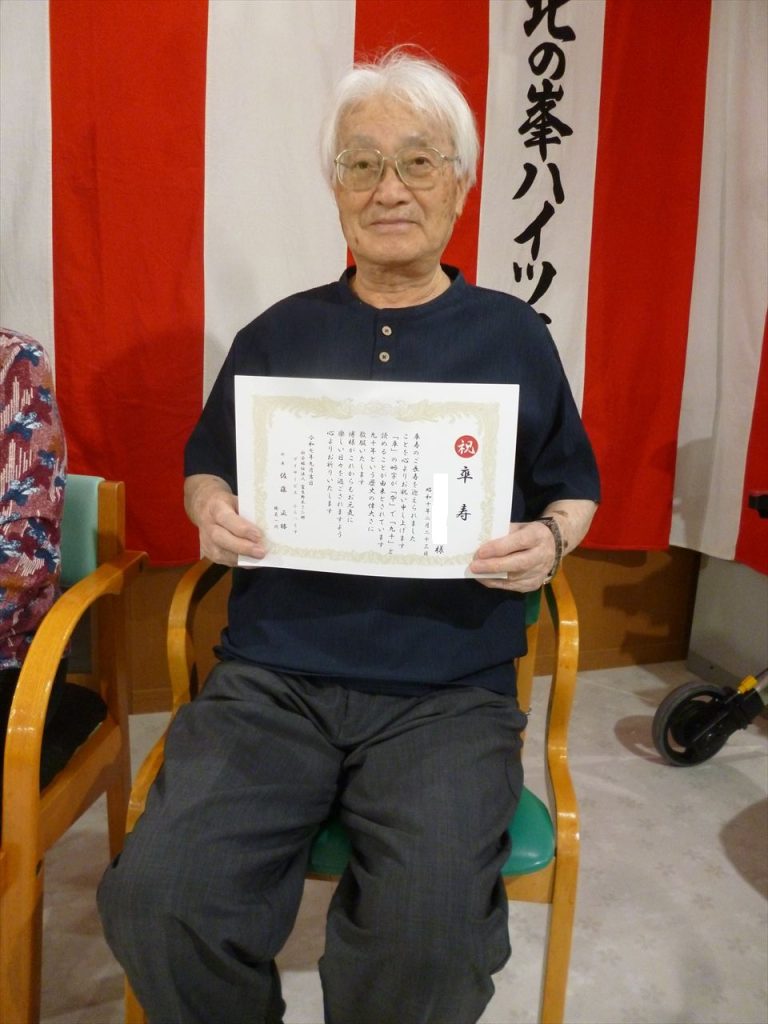 北の峯ハイツ
祝 卒寿
様
昭和十年二月二十三日
卒寿のご長寿を迎えられました
ことを心よりお祝い申し上げます
「卒」の略字が「卆」で「九十」と
読めることが由来とされています
九十年という歴史の偉大さに
敬服いたします
皆様がこれからもお元気に
楽しい日々を過ごされますよう
心よりお祈りいたします
令和七年九月吉日
佐藤 正勝